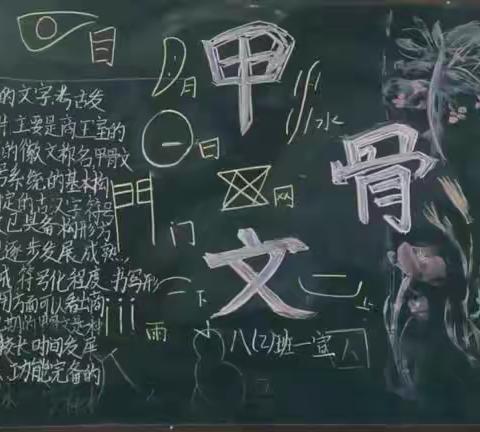 目
月
日
水
网
门
下
上
雨
甲
骨
文
的文字,考古发
片主要是商王室的
的徽文称名,甲骨文
系统的基本构
定的古汉字符号
已具备构形方
逐步发展成熟,
符号化程度、书写形
用方面可以看出商
较长时间发展
功能完备的
八(2)班一宣